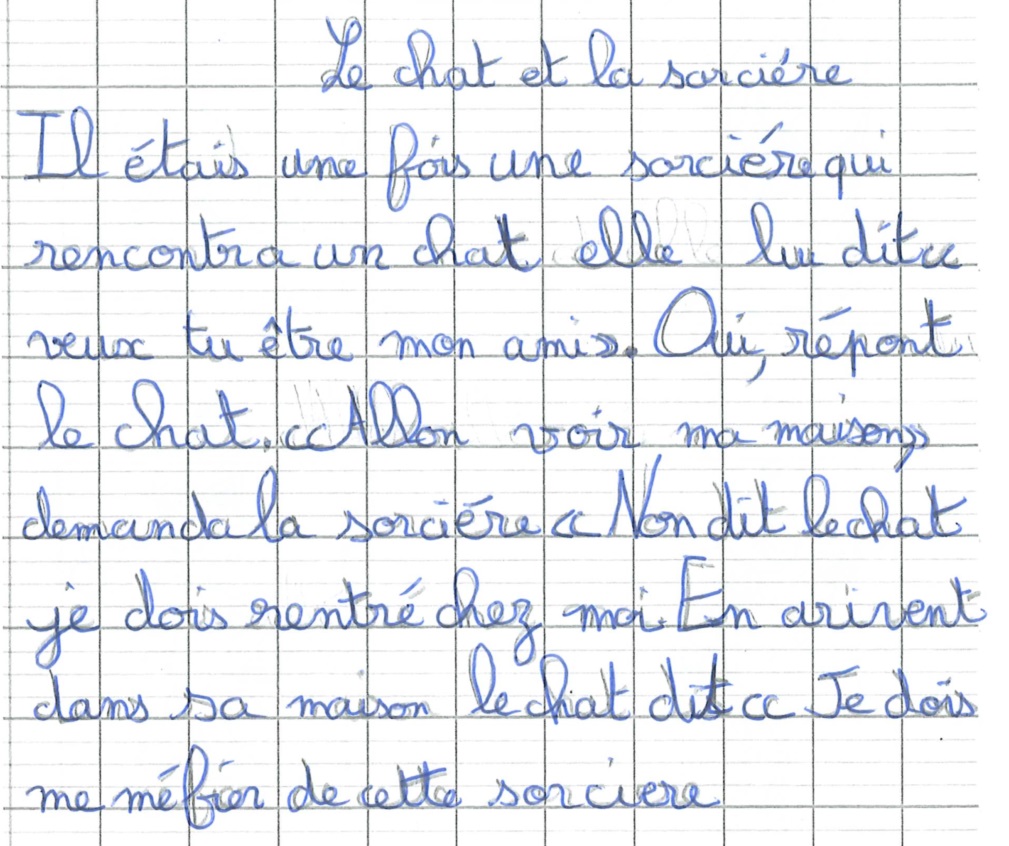 Le chat et la sorciére
Il étais une fois une sorciére qui
rencontra un chat elle lui dit «
veux tu être mon amis. Oui, répont
le chat. « Allon voir ma maison »
demanda la sorciére « Non dit le chat
je dois rentré chez moi. En arivent
dans sa maison le chat dit « Je dois
me méfier de cette sorciere